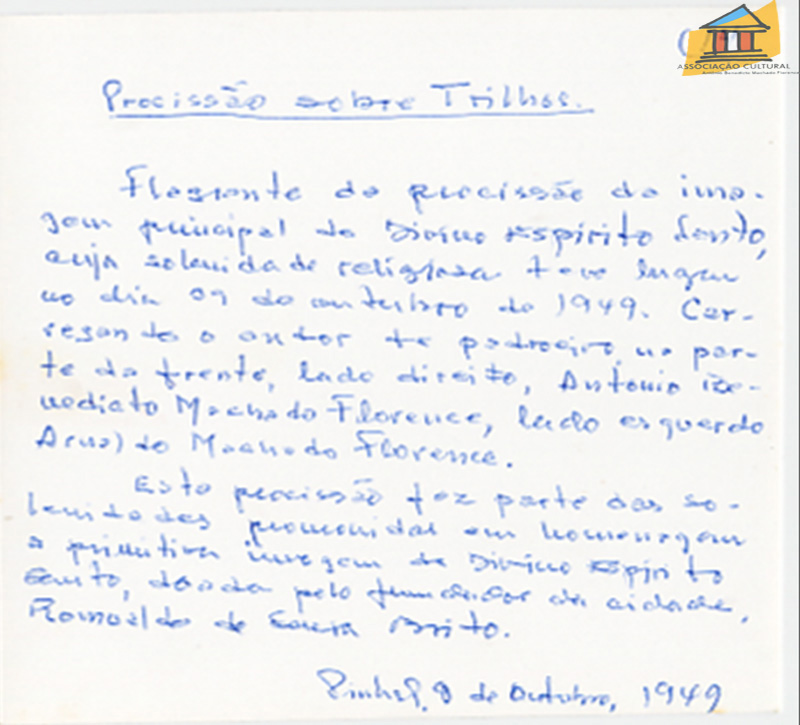 ASSOCIAÇÃO CULTURAL
Antonio Benedicto Machado Florence
Procissão sobre Trilhos.
Flagrante da procissão da ima-
gem principal do Divino Espirito Santo,
cuja solenidade religiosa teve lugar
no dia 09 de outubro de 1949. Car-
regando o andor na par-
te da frente, lado direito, Antonio Be-
nedicto Machado Florence, lado esquerdo
Arnaldo Machado Florence.
Esta procissão fez parte das so-
lenidades promovidas em homenagem
a primitiva imagem do Divino Espirito
Santo, doada pelo fundador da cidade,
Romoaldo de Souza Brito.
Pinhal, 9 de Outubro, 1949